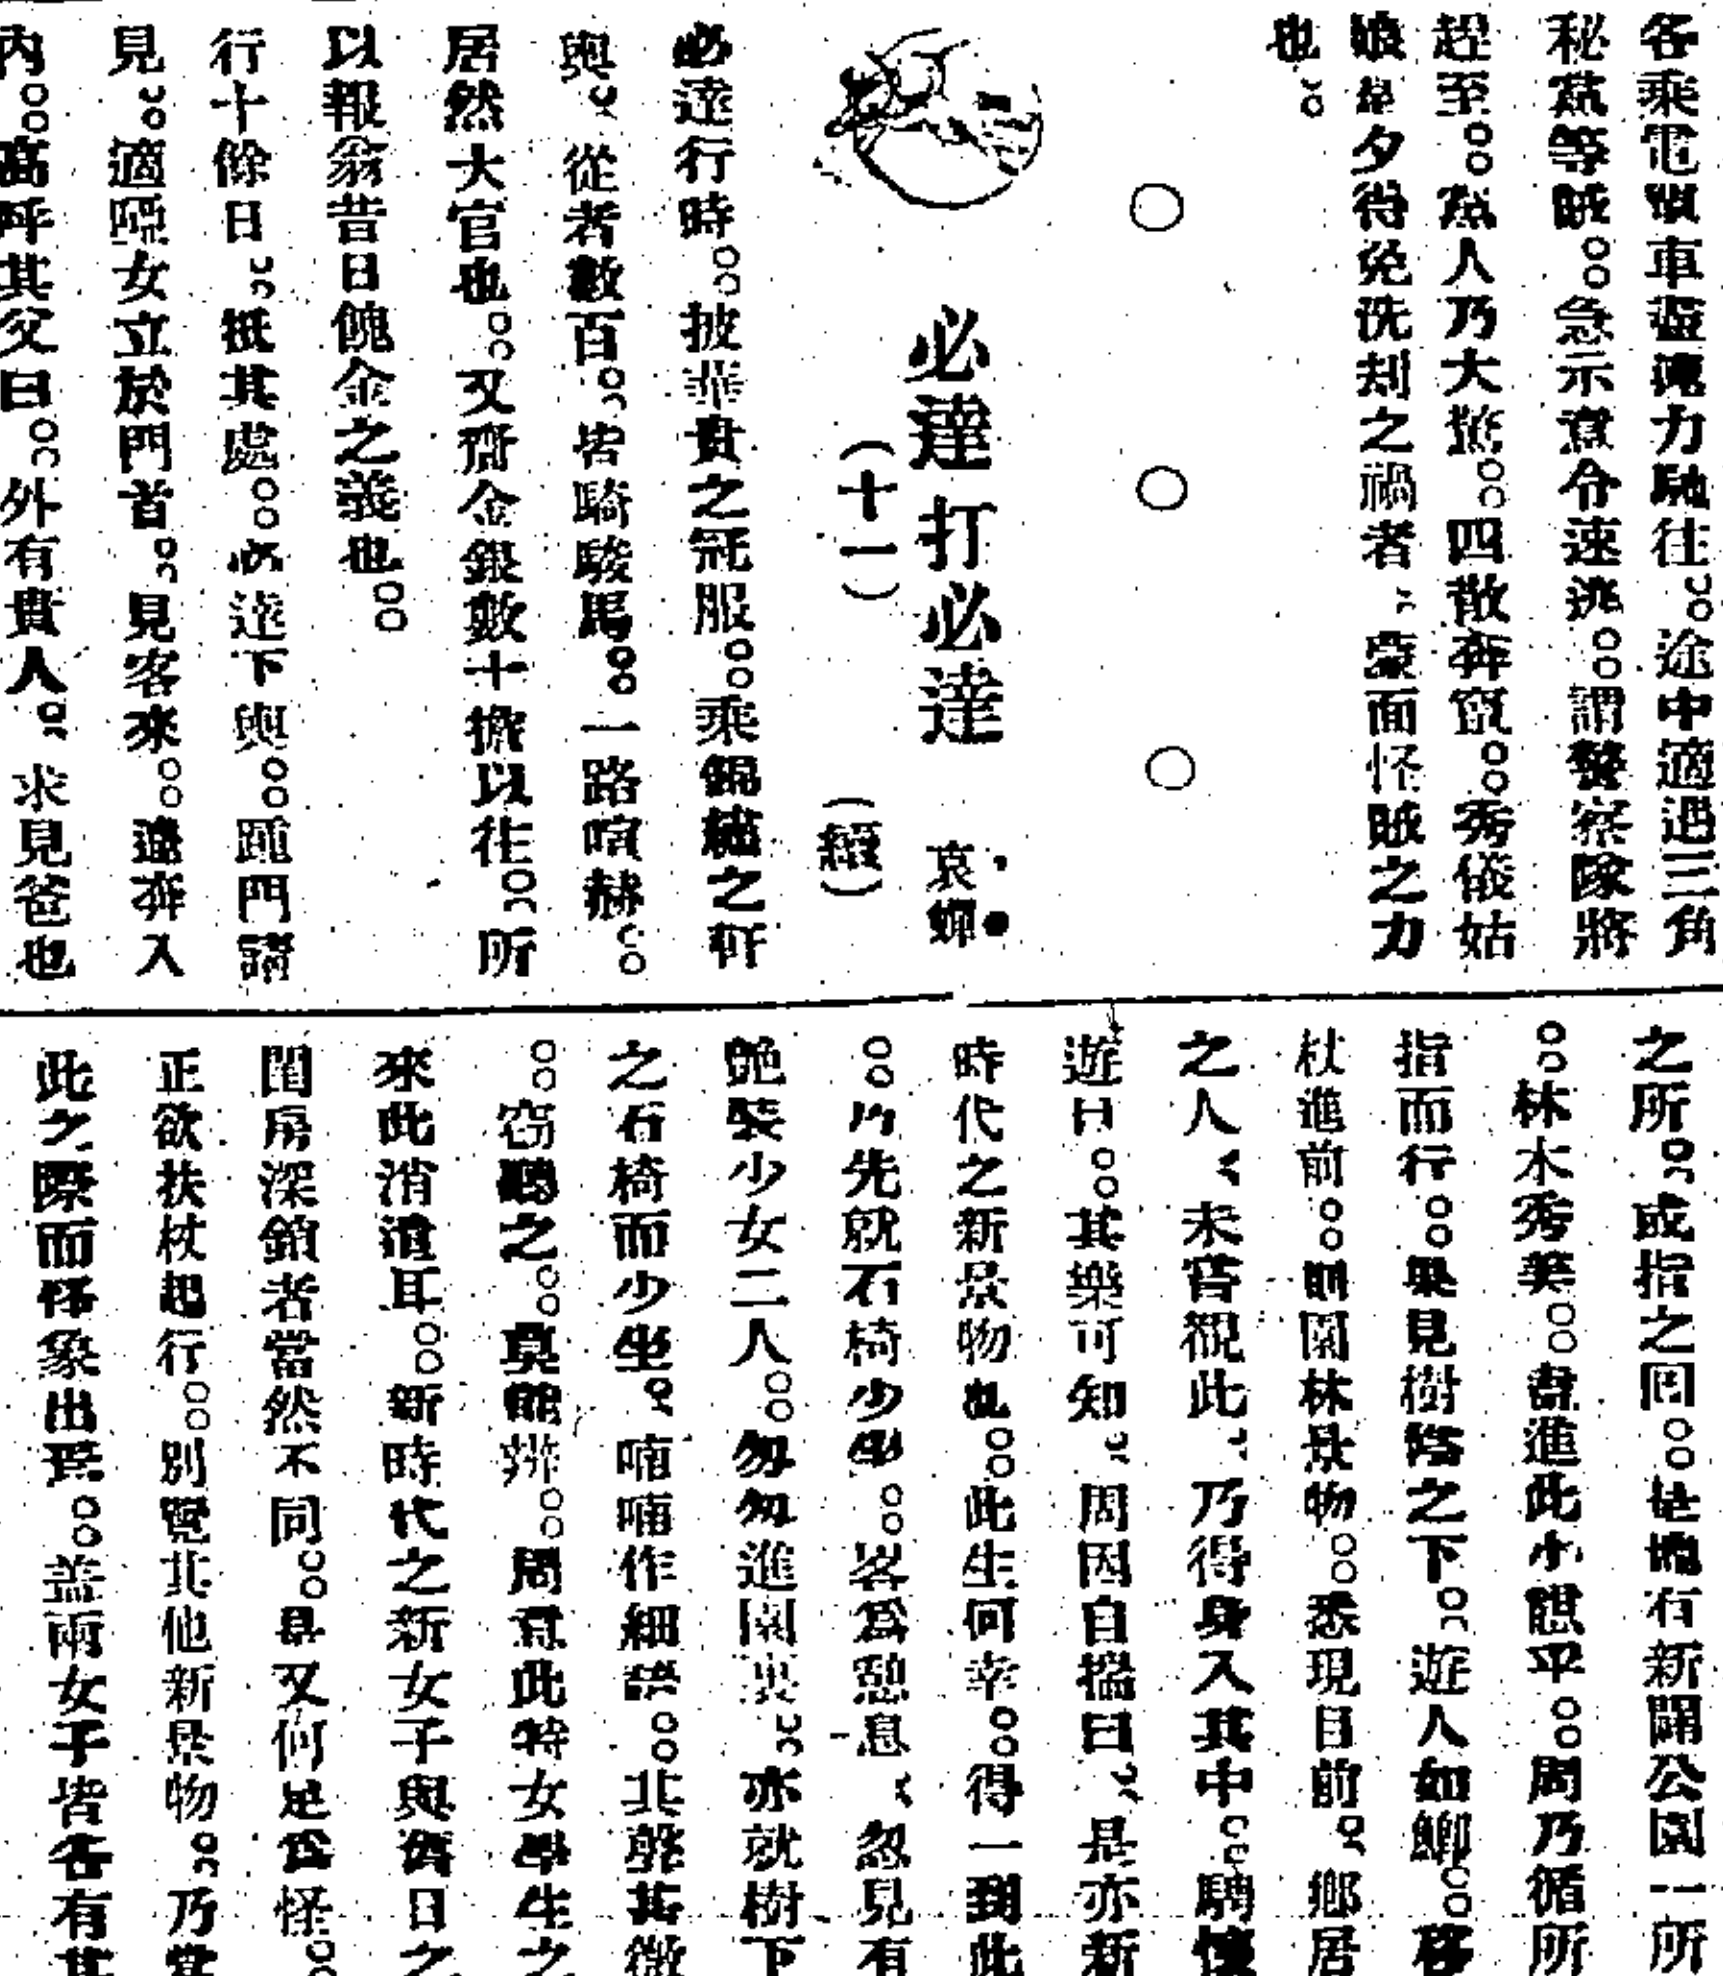 各乘電車盡速力馳往。途中適遇三角
秘黨等賊。急示意令速逃。謂警察隊將
趕至。黨人乃大驚。四散奔竄。秀儀姑
娘是夕得免洗刦之禍者、蒙面怪賊之力
也。
○ ○ ○
必達打必達
哀蟬
(十一)
(續)
必達行時。披華貴之冠服。乘錦繡之軒
輿。從者數百。皆騎駿馬。一路喧赫。
居然大官也。又齎金銀數十擔以往。所
以報翁昔日餽金之義也。
行十餘日。抵其處。必達下輿。踵門請
見。適碰女立於門首。見客來。遽奔入
內。高呼其父曰。外有貴人。求見爸也
之所。或指之囘。是地有新闢公園一所
。林木秀美。盡進此小憩乎。周乃循所
指而行。果見樹蔭之下。遊人如鯽。移
杖進前。則園林景物。悉現目前。鄉居
之人、未嘗觀此、乃得身入其中。騁懷
遊日。其樂可知。周因自揣曰、是亦新
時代之新景物也。此生何幸。得一到此
。乃先就石椅少坐。畧爲憩息、忽見有
艷裝少女二人。匆匆進園裏。亦就樹下
之石椅而少坐。喃喃作細語。其聲甚微
。竊聽之。莫能辨。周意此特女學生之
來此消遣耳。新時代之新女子與舊日之
閨房深鎖者當然不同。是又何足爲怪。
正欲扶杖起行。別覽其他新景物。乃當
此之際而怪象出焉。蓋兩女子皆各有其